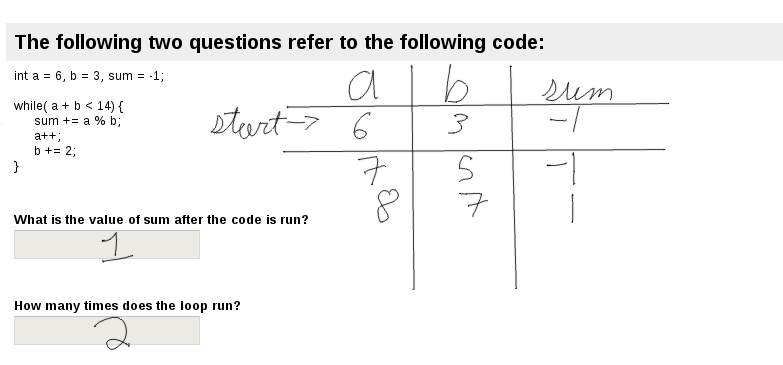 The following two questions refer to the following code:
int a = 6, b = 3, sum = -1;
while( a + b < 14) {
sum += a % b;
a++;
b += 2;
}
a b sum
start-> 6 3 -1
7 5 -1
8 7 1
What is the value of sum after the code is run?
1
How many times does the loop run?
2